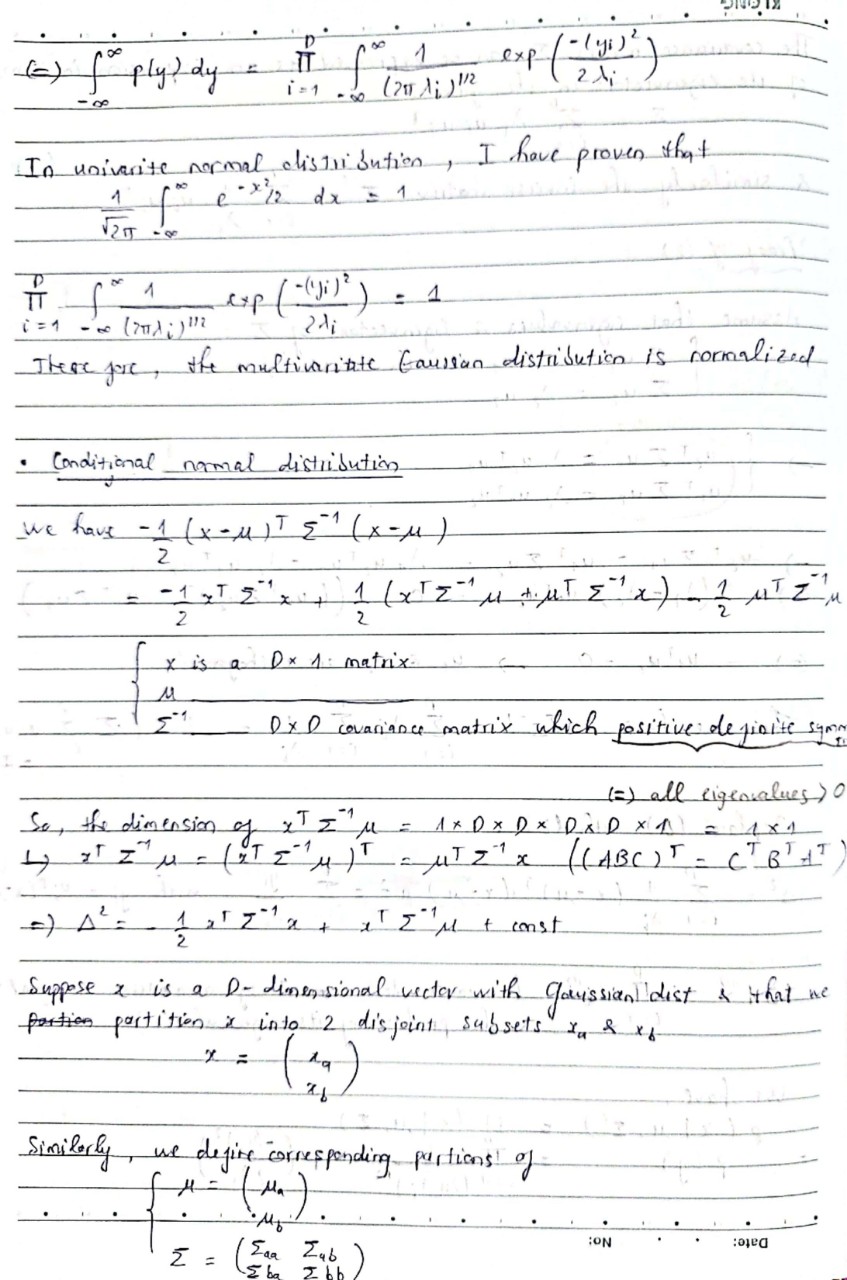 KLONG
(=) ∫_{-∞}^{∞} p(y) dy = ∏_{i=1}^{D} ∫_{-∞}^{∞} 1/(2πλi)^{1/2} exp(-(yi)²/2λi)
In univarite normal distribution, I have proven that
1/√2π ∫_{-∞}^{∞} e^{-x²/2} dx = 1
∏_{i=1}^{D} ∫_{-∞}^{∞} 1/(2πλi)^{1/2} exp(-(yi)²/2λi) = 1
There fore, the multivaritate Gaussian distribution is normalized
• Conditional normal distribution
We have -1/2 (x-μ)ᵀ Σ⁻¹ (x-μ)
= -1/2 xᵀ Σ⁻¹ x + 1/2 (xᵀ Σ⁻¹ μ + μᵀ Σ⁻¹ x) - 1/2 μᵀ Σ⁻¹ μ
{ x is a D×1 matrix
μ
Σ⁻¹ D×D covariance matrix which positive definite symm
(=) all eigenvalues > 0
So, the dimension of xᵀ Σ⁻¹ μ = 1×D×D×D×D×1 = 1×1
↳ xᵀ Σ⁻¹ μ = (xᵀ Σ⁻¹ μ)ᵀ = μᵀ Σ⁻¹ x ((ABC)ᵀ = Cᵀ Bᵀ Aᵀ)
=) Δ² = -1/2 xᵀ Σ⁻¹ x + xᵀ Σ⁻¹ μ + const
Suppose x is a D-dimensional vector with Gaussian dist & that we
partion partition x into 2 disjoint subsets xa & xb
x = (xa xb)
Similarly, we define corresponding partions of
{ μ = (μa μb)
Σ = (Σaa Σab Σba Σbb)
No: Date: